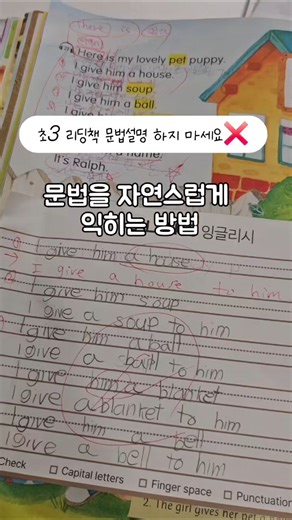 There is
Here is my lovely pet puppy.
I give him a house.
I give him soup
I give him a ball.
초3 리딩책 문법설명 하지 마세요❌
It's Ralph.
문법을 자연스럽게
익히는 방법
잉글리시
I give him a house
→ I give a house to him
I give him soup
I give a soup to him
I give him a ball
I give a ball to him
I give him a blanket
I give a blanket to him
I give him a bell
I give a bell to him
Check □ Capital letters □ Finger space □ Punctuation
2. The girl gives her pet a